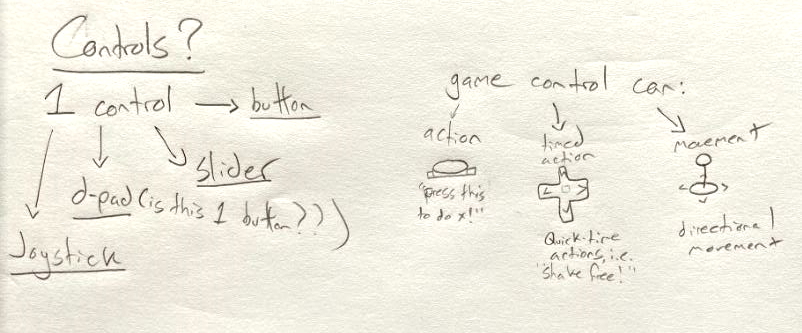 Controls?
1 control → button
slider
d-pad (is this 1 button??))
Joystick
game control can:
action
"press this
to do x!"
timed
action
Quick-time
actions, i.e.
"shake free!"
movement
directional
movement